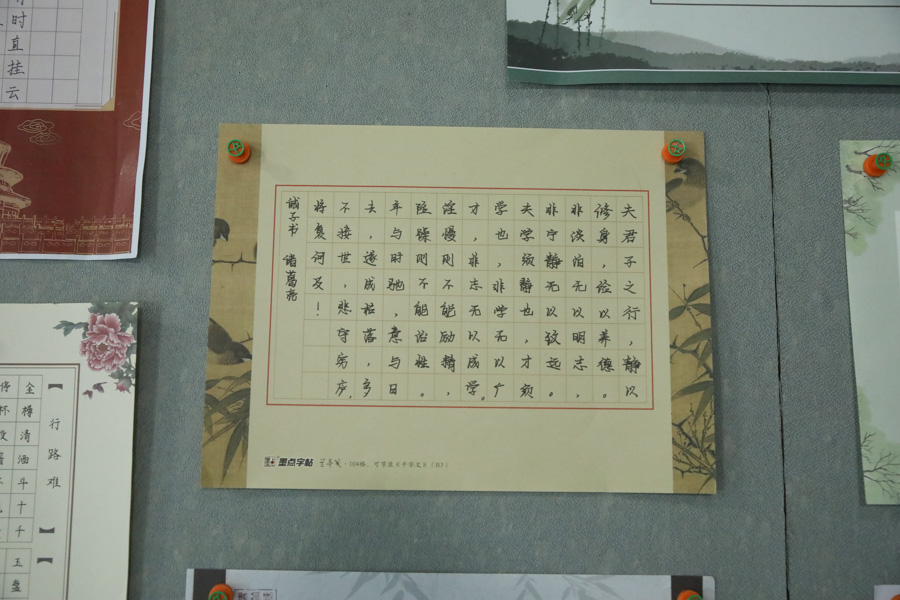 夫君子之行，静以
修身，俭以养德。
非淡泊无以明志，
非宁静无以致远。
夫学须静也，才须
学也，非学无以广
才，非志无以成学。
淫慢则不能励精，
险躁则不能治性。
年与时驰，意与日
去，遂成枯落，多
不接世，悲守穷庐，
将复何及！
诫子书 诸葛亮
墨点字帖 兰亭笺·104格，可节录《千字文》（B3）
时直挂云
【行路难】
金樽清酒斗十千 玉盘
停杯投